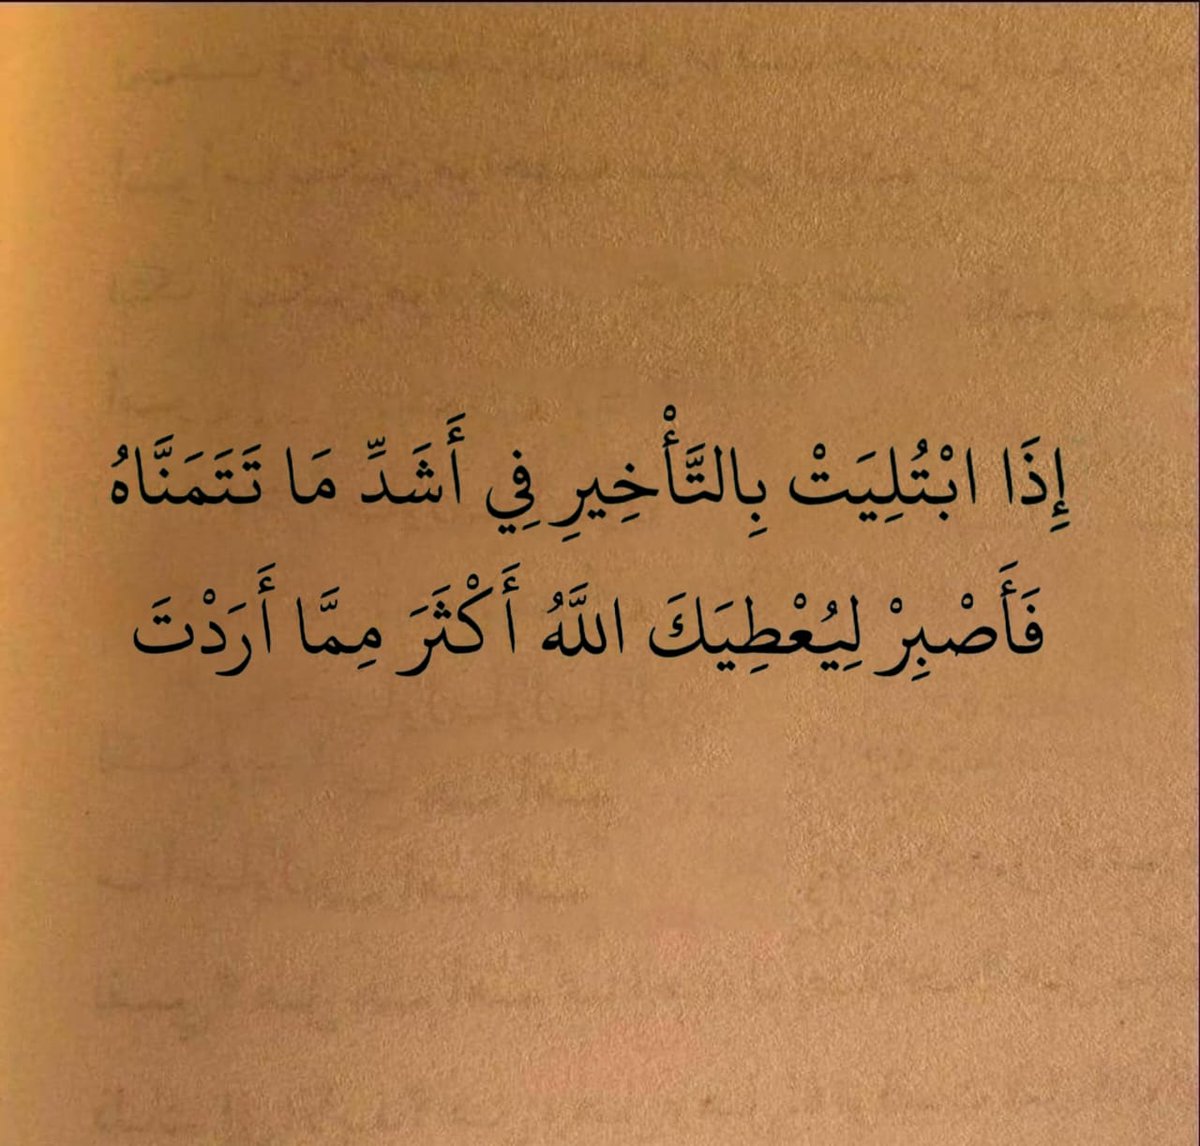 إِذَا ابْتُلِيَتْ بِالتَّأْخِيرِ فِي أَشَدِّ مَا تَتَمَنَّاهُ
فَأَصْبِرْ لِيُعْطِيَكَ اللَّهُ أَكْثَرَ مِمَّا أَرَدْتَ